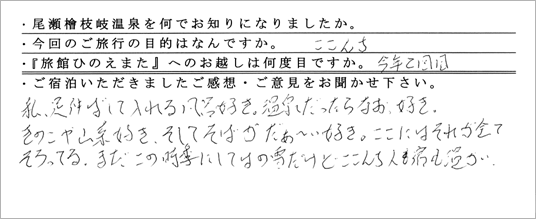 ・尾瀬檜枝岐温泉を何でお知りになりましたか。
・今回のご旅行の目的はなんですか。 ここんち
・『旅館ひのえまた』へのお越しは何度目ですか。 今年2回目
・ご宿泊いただきましたご感想・ご意見をお聞かせ下さい。
私、足伸ばして入れる風呂好き。温泉だったらなお好き。
きのこや山菜好き、そしてそばがだぁ〜い好き。ここにはそれが全て
そろってる。まだこの時季にしては雪だけどここんち人も宿も温かい